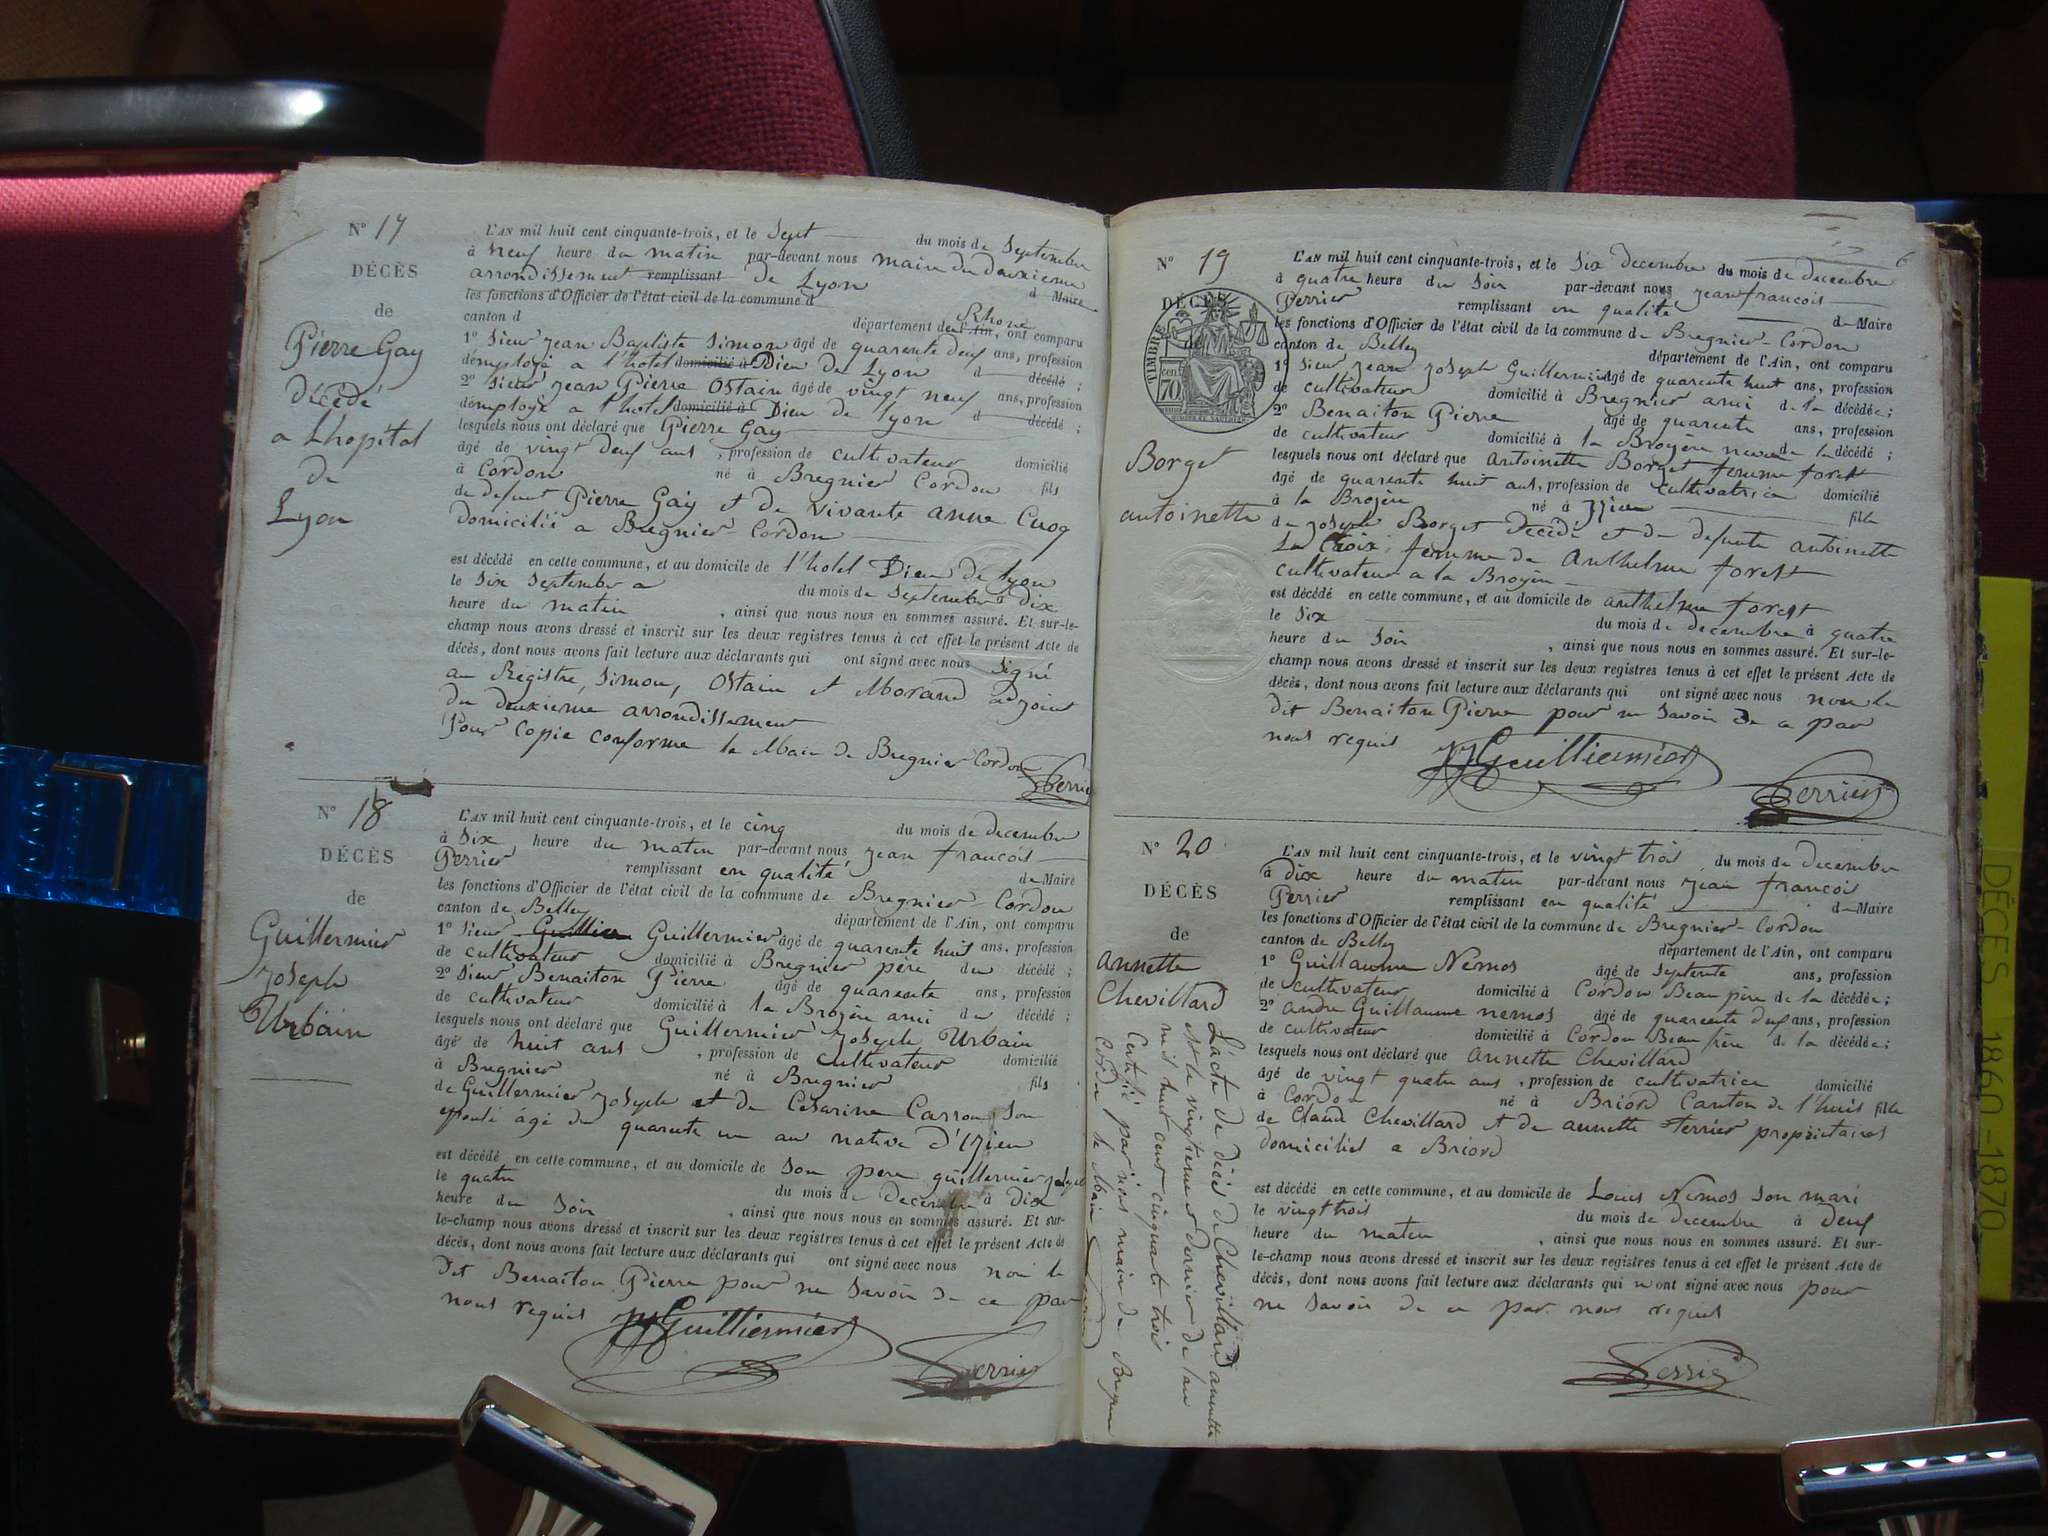 Nº 17
DÉCÈS
de
Pierre Gay
décédé
a Lhopital
de
Lyon
L'AN mil huit cent cinquante-trois, et le Sept du mois de Septembre
à neuf heure du matin par-devant nous maire du deuxieme
arrondissement remplissant de Lyon d Maire
les fonctions d'Officier de l'état civil de la commune d
canton d département de l'Ain, Rhone ont comparu
1º Sieur jean Baptiste Simon âgé de quarente deuf ans, profession
demployé a l'hotel domicilié à Dieu de Lyon d décédé ;
2º Sieur jean Pierre Ostain âgé de vingt neuf ans, profession
demployé a l'hotel domicilié à Dieu de Lyon d décédé ;
lesquels nous ont déclaré que Pierre Gay
âgé de vingt deuf ans, profession de cultivateur domicilié
à Cordon né à Bregnier Cordon fils
de defunt Pierre Gay et de vivante anne Cuoq
domicilié a Bregnier-Cordon
est décédé en cette commune, et au domicile de l'hotel Dieu de Lyon
le Six Septembre a du mois de Septembre à dix
heure du matin, ainsi que nous nous en sommes assuré. Et sur-le-
champ nous avons dressé et inscrit sur les deux registres tenus à cet effet le présent Acte de
décès, dont nous avons fait lecture aux déclarants qui ont signé avec nous Signé
au Registre, Simon, Ostain et Morand adjoint
du deuxieme arrondissement
Pour Copie conforme le Maire de Bregnier Cordon
Perrier
Nº 18
DÉCÈS
de
Guillermier
Joseph
Urbain
L'AN mil huit cent cinquante-trois, et le cinq du mois de decembre
à Six heure du matin par-devant nous jean francois
Perrier remplissant en qualité de Maire
les fonctions d'Officier de l'état civil de la commune de Bregnier-Cordon
canton de Belley département de l'Ain, ont comparu
1º Sieur Guillier Guillermier âgé de quarente huit ans, profession
de cultivateur domicilié à Bregnier père du décédé ;
2º Sieur Benaiton Pierre âgé de quarente ans, profession
de cultivateur domicilié à la Broyère ami du décédé ;
lesquels nous ont déclaré que Guillermier Joseph Urbain
âgé de huit ans, profession de cultivateur domicilié
à Bregnier né à Bregnier fils
de Guillermier Joseph et de Cesarine Carron Son
epouse âgé de quarente un an native d'Izieu
est décédé en cette commune, et au domicile de Son pere guillermier joseph
le quatre du mois de Decembre à Dix
heure du Soir, ainsi que nous nous en sommes assuré. Et sur-
le-champ nous avons dressé et inscrit sur les deux registres tenus à cet effet le présent Acte de
décès, dont nous avons fait lecture aux déclarants qui ont signé avec nous non le
Dit Benaiton Pierre pour ne Savoir de ce par
nous requis JJGuilliermier
Perrier
6
Nº 19
DÉCÈS
TIMBRE
70 cent
Borget
antoinette
L'AN mil huit cent cinquante-trois, et le Six decembre du mois de decembre
à quatre heure du Soir par-devant nous jean francois
Perrier remplissant en qualité de Maire
les fonctions d'Officier de l'état civil de la commune de Bregnier-Cordon
canton de Belley département de l'Ain, ont comparu
1º Sieur jean Joseph Guillermier âgé de quarente huit ans, profession
de cultivateur domicilié à Bregnier ami de la décédée ;
2º Benaiton Pierre âgé de quarente ans, profession
de cultivateur domicilié à la Broyère neveu de la décédé ;
lesquels nous ont déclaré que Antoinette Borget femme forest
âgé de quarente huit ans, profession de cultivatrice domicilié
à la Broyère né à Izieu fille
de Joseph Borget Décédé et de defunte antoinette
La Croix, femme de Anthelme forest
cultivateur a la Broyere
est décédé en cette commune, et au domicile de anthelme forest
le Six du mois de decembre à quatre
heure du Soir, ainsi que nous nous en sommes assuré. Et sur-le-
champ nous avons dressé et inscrit sur les deux registres tenus à cet effet le présent Acte de
décès, dont nous avons fait lecture aux déclarants qui ont signé avec nous non le
dit Benaiton Pierre pour ne Savoir de ce par
nous requis JJGuilliermier
Perrier
Nº 20
DÉCÈS
de
annette
Chevillard
L'acte de décès de Chevillard annette
est le vingtieme et dernier de l'an
mil huit cent cinquante trois
Certifié par nous maire de Bregnier
Cordon le Maire Perrier
L'AN mil huit cent cinquante-trois, et le vingt trois du mois de decembre
à dix heure du matin par-devant nous jean francois
Perrier remplissant en qualité de Maire
les fonctions d'Officier de l'état civil de la commune de Bregnier-Cordon
canton de Belley département de l'Ain, ont comparu
1º Guillaume Nemos âgé de septente ans, profession
de cultivateur domicilié à Cordon Beau père de la décédée ;
2º andre Guillaume nemos âgé de quarente deuf ans, profession
de cultivateur domicilié à Cordon Beau frère de la décédée ;
lesquels nous ont déclaré que annette Chevillard
âgé de vingt quatre ans, profession de cultivatrice domicilié
à Cordon né à Briord Canton de l'huis fille
de Claud Chevillard et de annette Terrier propriétaires
domiciliés a Briord
est décédé en cette commune, et au domicile de Louis Nemos son mari
le vingt trois du mois de decembre à deuf
heure du matin, ainsi que nous nous en sommes assuré. Et sur-
le-champ nous avons dressé et inscrit sur les deux registres tenus à cet effet le présent Acte de
décès, dont nous avons fait lecture aux déclarants qui n ont signé avec nous pour
ne Savoir de ce par nous requis
Perrier
DÉCES 1860-1870